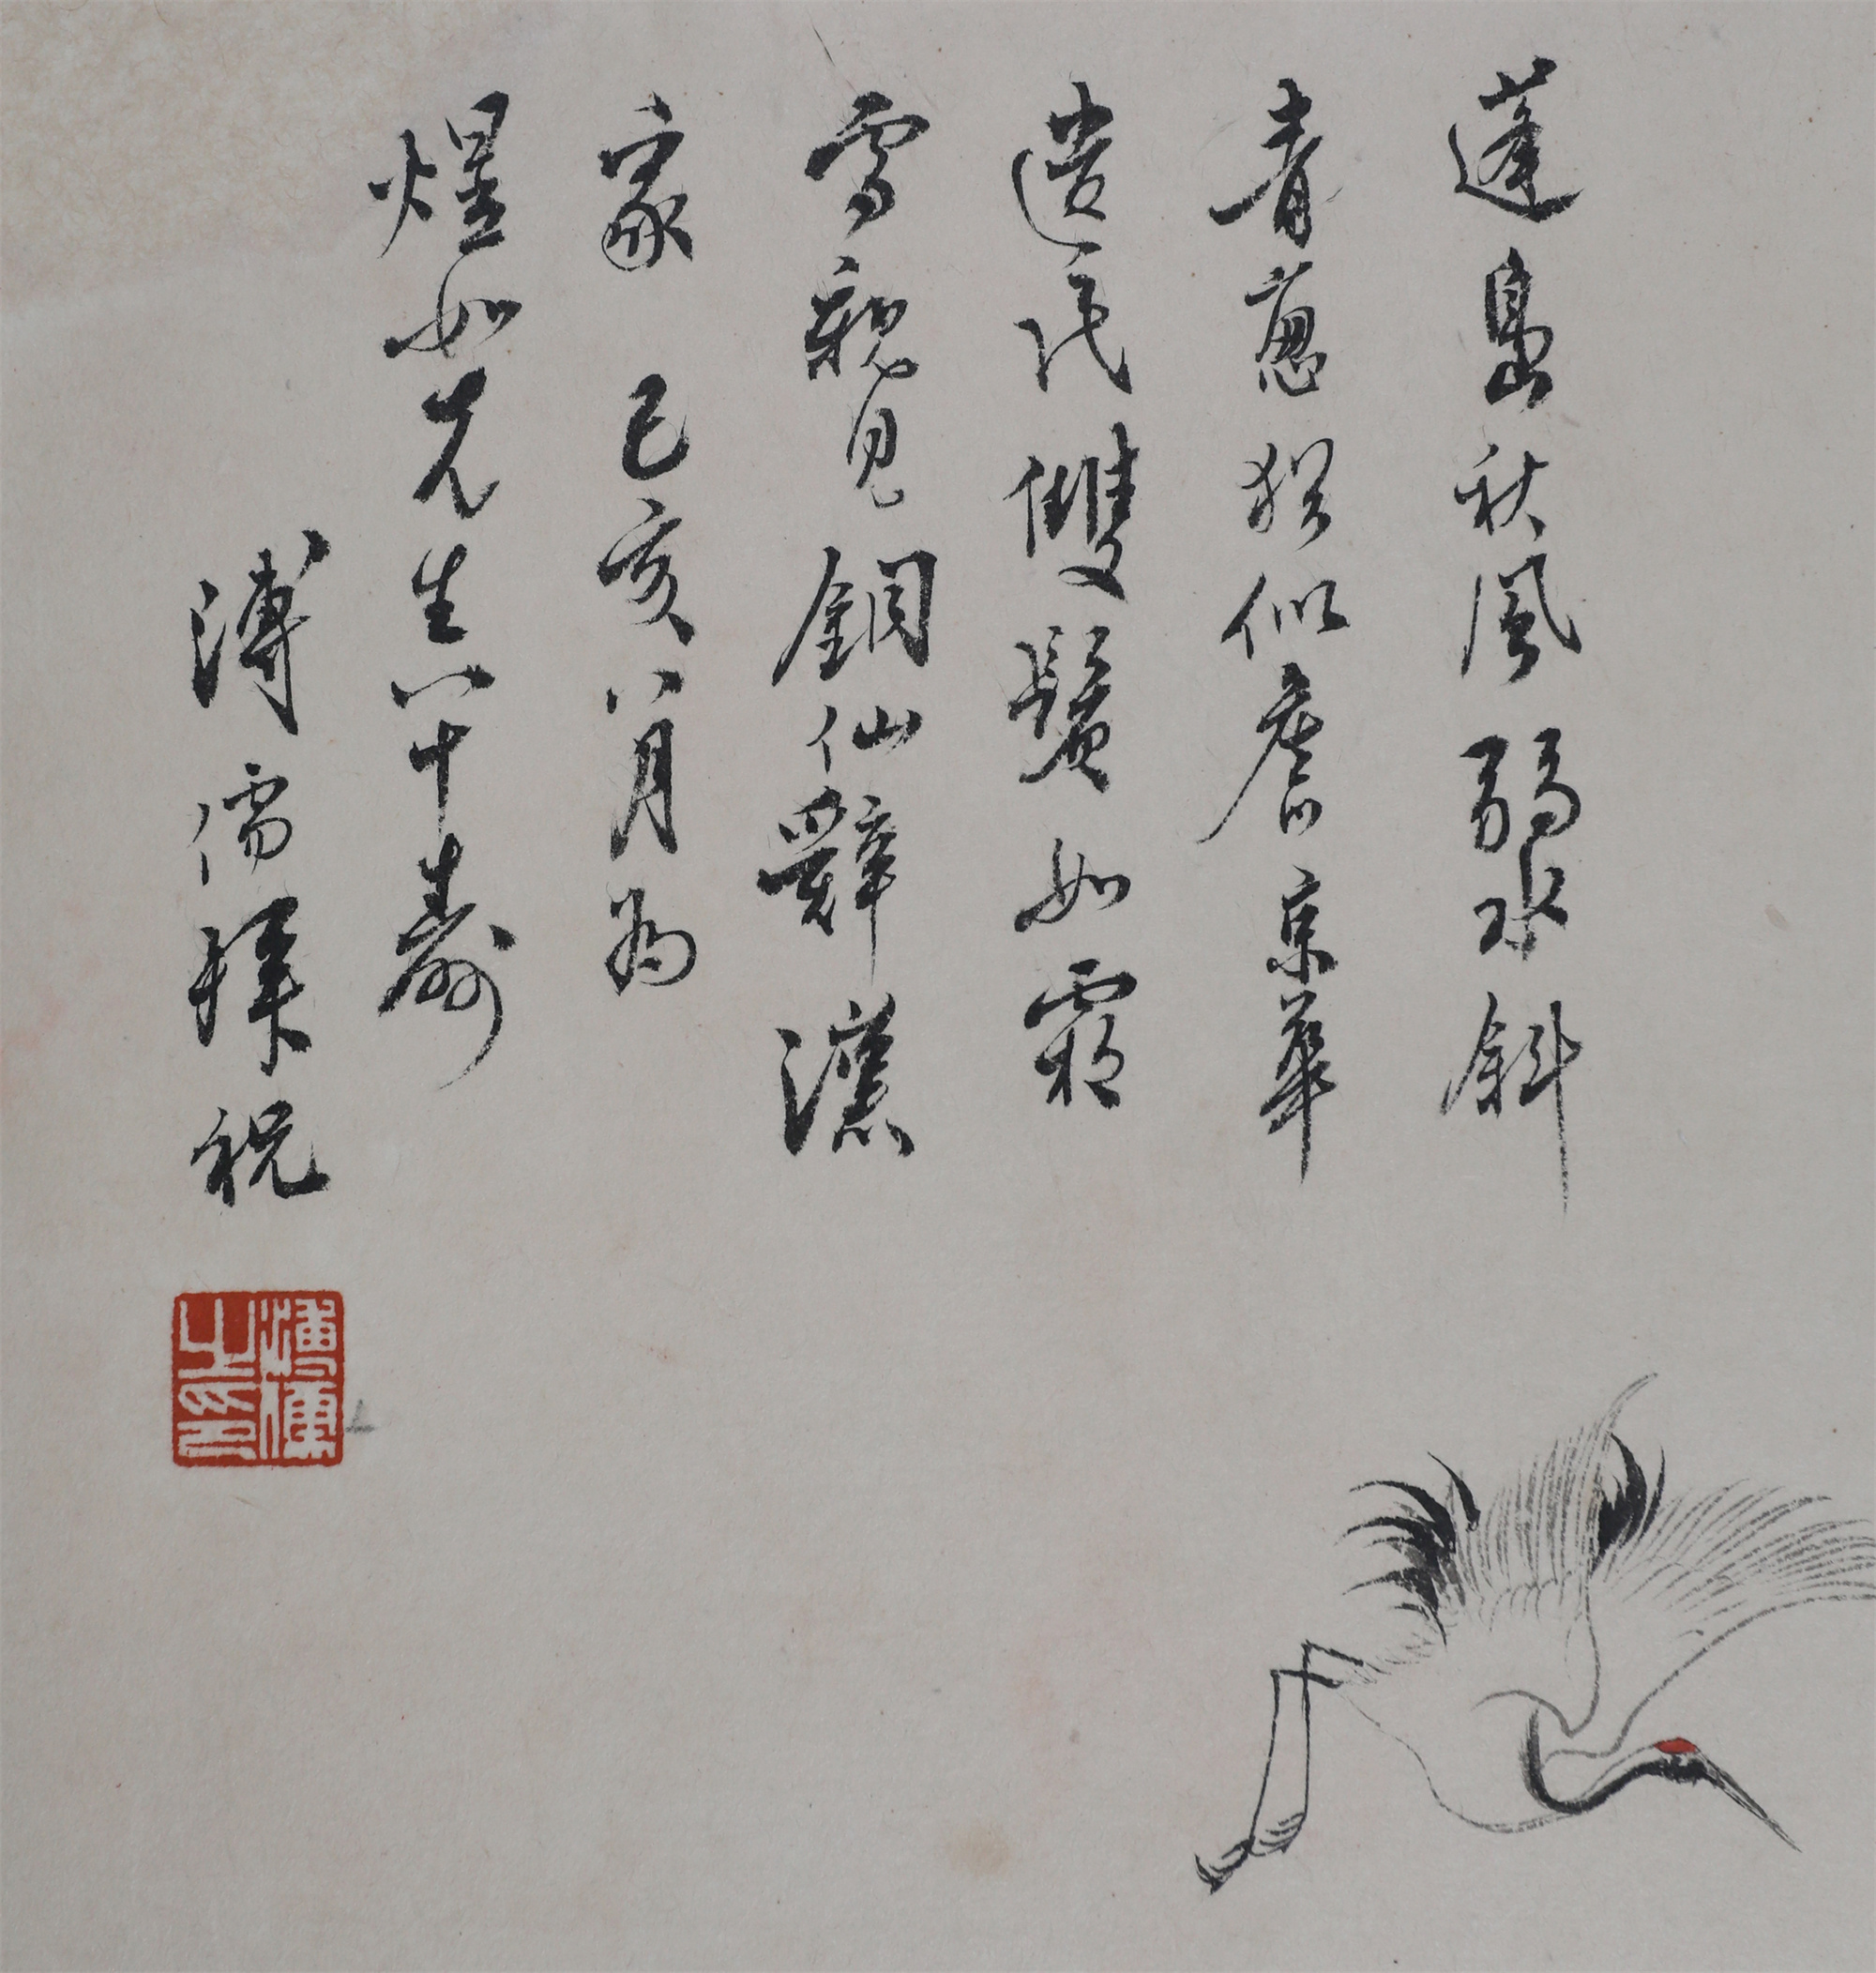 蓬島秋風弱水斜
青蔥猶似舊京華
遺民雙鬢如霜
雪親見銅仙辭漢
家 己亥八月為
煜如先生八十壽
溥儒拜祝
溥儒之印